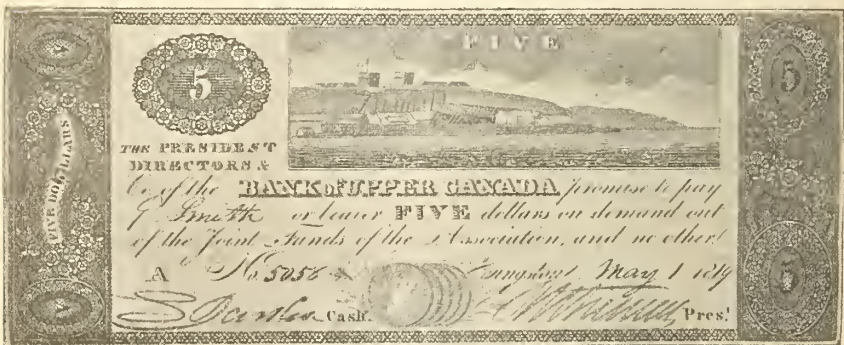 FIVE
5
5
THE PRESIDENT
DIRECTORS &
Co. of the BANK of UPPER CANADA promise to pay
G Smith or bearer FIVE dollars on demand out
of the Joint Funds of the Association, and no other
A No. 5056 A Kingston May 1 1819
S Bartlet Cash. Pres!
FIVE DOLLARS
5